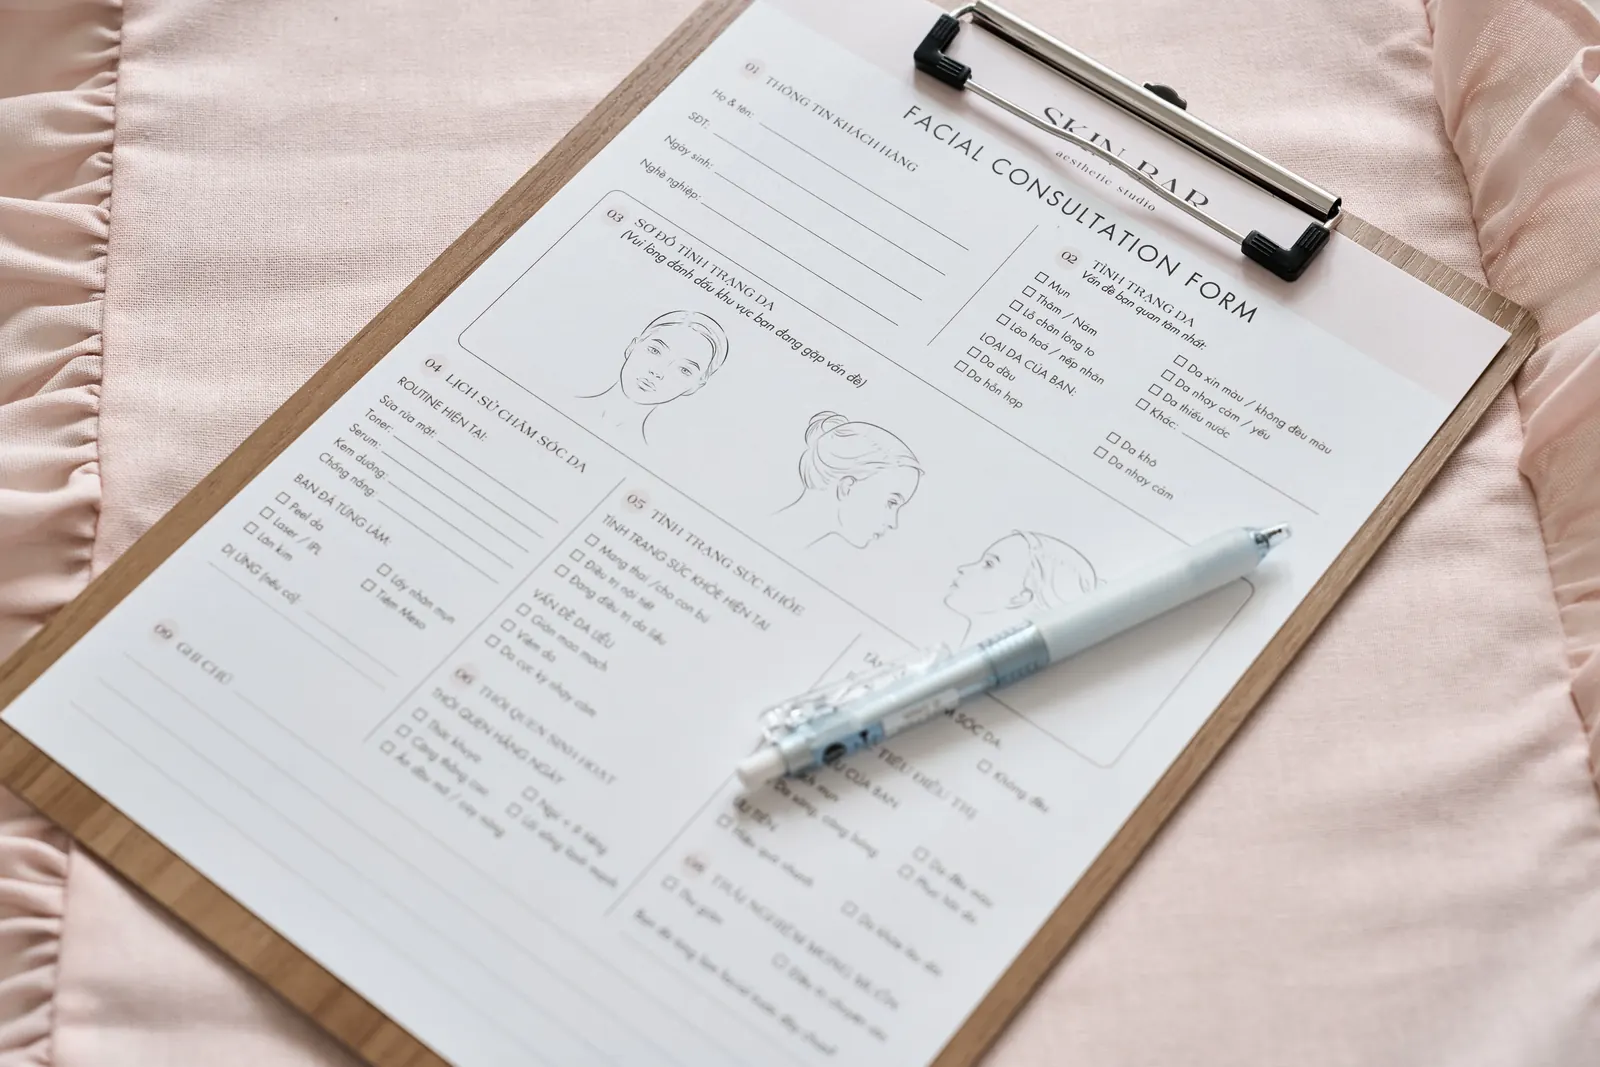 SKIN BAR
aesthetic studio
FACIAL CONSULTATION FORM
01 THÔNG TIN KHÁCH HÀNG
Họ & tên:
SĐT:
Ngày sinh:
Nghề nghiệp:
02 TÌNH TRẠNG DA
Vấn đề bạn quan tâm nhất:
Mụn
Thâm / Nám
Lỗ chân lông to
Lão hoá / nếp nhăn
Da xỉn màu / không đều màu
Da nhạy cảm / yếu
Da thiếu nước
Khác:
LOẠI DA CỦA BẠN:
Da dầu
Da hỗn hợp
Da khô
Da nhạy cảm
03 SƠ ĐỒ TÌNH TRẠNG DA
(Vui lòng đánh dấu khu vực bạn đang gặp vấn đề)
04 LỊCH SỬ CHĂM SÓC DA
ROUTINE HIỆN TẠI:
Sữa rửa mặt:
Toner:
Serum:
Kem dưỡng:
Chống nắng:
BẠN ĐÃ TỪNG LÀM:
Peel da
Laser / IPL
Lăn kim
Lấy nhân mụn
Tiêm Meso
DỊ ỨNG (nếu có)
05 TÌNH TRẠNG SỨC KHỎE
TÌNH TRẠNG SỨC KHỎE HIỆN TẠI
Mang thai /cho con bú
Điều trị nội tiết
Đang điều trị da liễu
VẤN ĐỀ DA LIỄU
Giãn mao mạch
Viêm da
Da cực kỳ nhạy cảm
06 THÓI QUEN SINH HOẠT
THÓI QUEN HẰNG NGÀY
Thức khuya
Căng thẳng cao
Ăn dầu mỡ / cay nóng
Ngủ < 6 tiếng
Lối sống lành mạnh
SÓC DA
Không đều
TIÊU ĐIỀU TRỊ
CỦA BẠN
mụn
Da sáng, căng bóng
Da đều màu
Phục hồi da
TIÊN
Hiệu quả nhanh
08 TRẢI NGHIỆM MONG MUỐN
Thư giãn
Điều trị chuyên sâu
09 GHI CHÚ